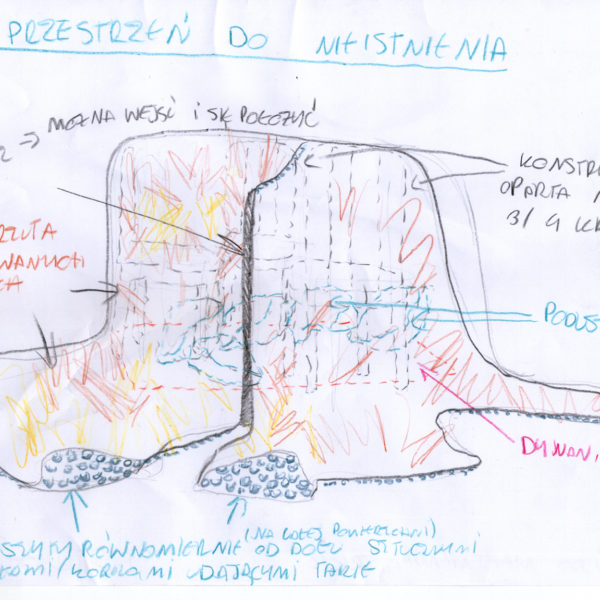 PRZESTRZEŃ DO NIEISTNIENIA
MOŻNA WEJŚĆ I SIĘ POŁOŻYĆ
KONSTRU
OPARTA N
3/4
RZUTA
WANYCH
PODUS
DYWAN
(NA CAŁEJ POWIERZCHNI)
SZYTY RÓWNOMIERNIE OD DOŁU SZTUCZNYMI
KAMI/KORALAMI UDAJĄCYMI